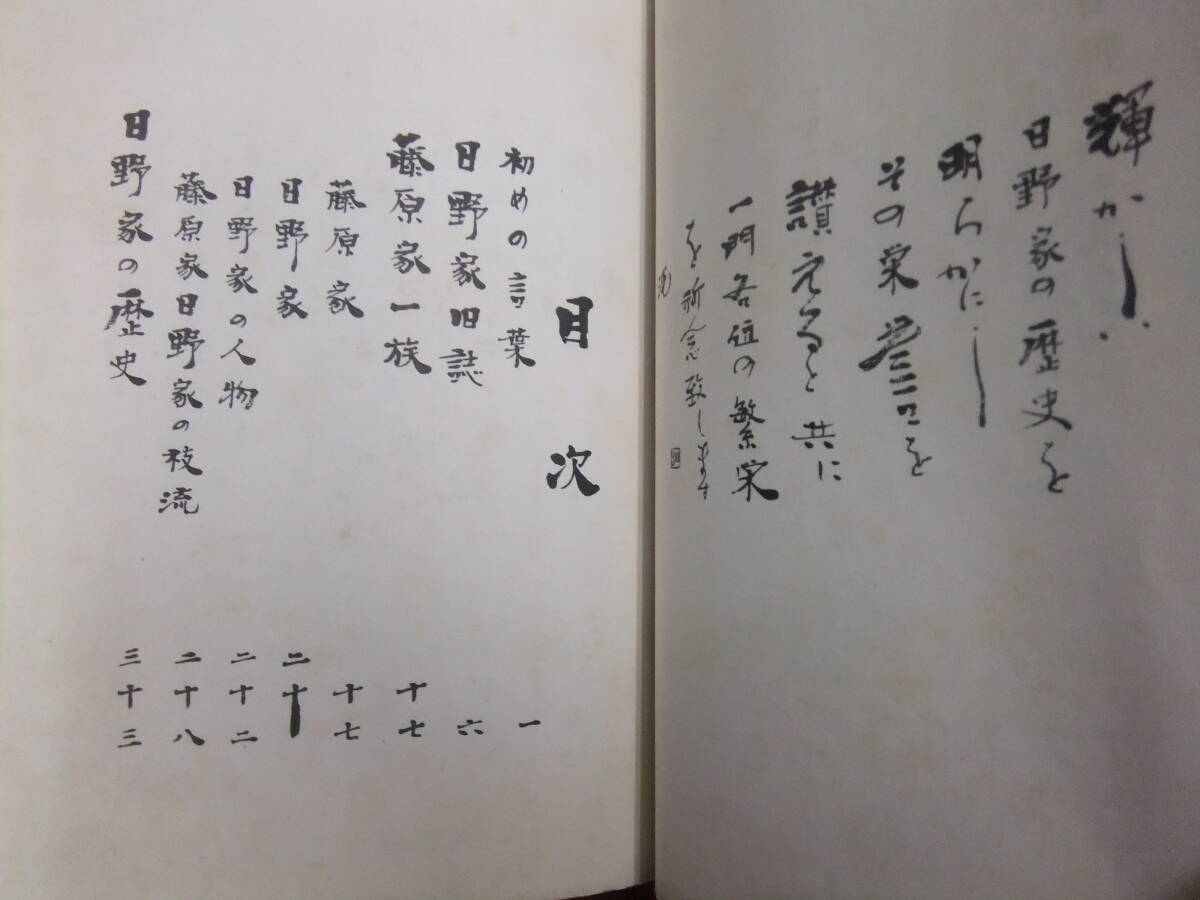 輝かしい
日野家の歴史を
明らかにし
その栄誉を
讃えると共に
一門各位の繁栄
を祈念致します
目次
初めの言葉 一
日野家旧誌 六
藤原家一族 十七
藤原家 十七
日野家 二十
日野家の人物 二十二
藤原家日野家の枝流 二十八
日野家の歴史 三十三